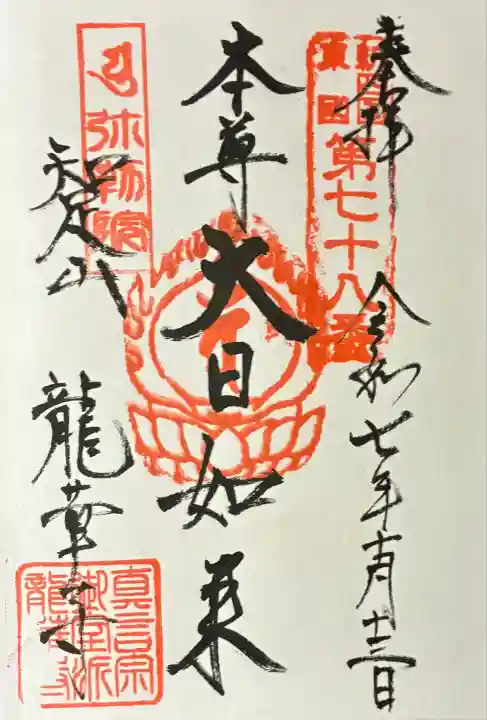 奉拝
令和七年十一月十三日
第七十八番
本尊
大日如来
弥勒院
智足山
龍華寺
真言宗
御室派
龍華寺